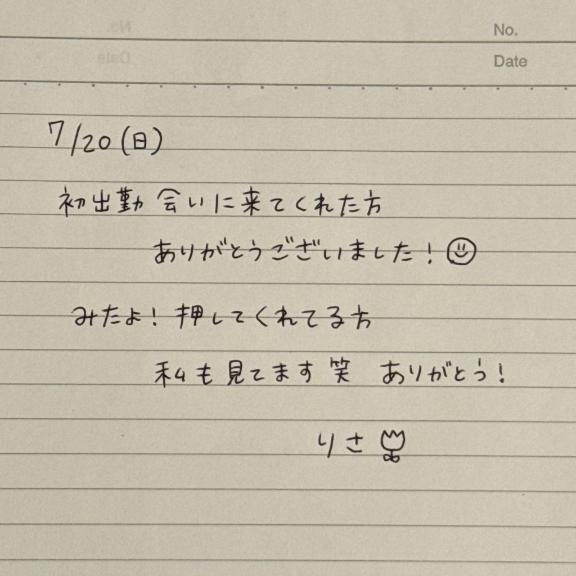 No.
Date
7/20(日)
初出勤 会いに来てくれた方
ありがとうございました!
みたよ! 押してくれてる方
私も見てます笑 ありがとう!
りさ